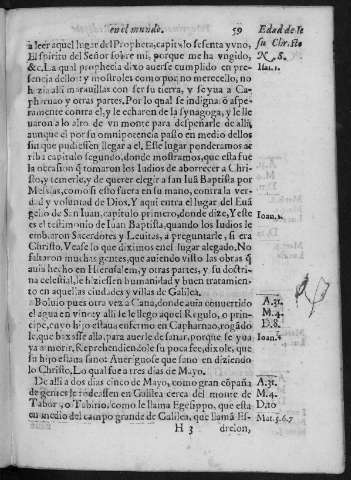 en el mundo. 59 Edad de Ie
su Chr̃isto
N. S.
à leer aquel lugar del Propheta, capitulo sesenta y vno,
El espiritu del Señor sobre mi, porque me ha vngido,
&c. La qual prophecia dixo auerse cumplido en pre- Isai. 1.
sencia dellos: y mostroles como por no merecello, no
hizia alli marauillas con ser su tierra, y se yua a Ca-
pharnao y otras partes. Por lo qual se indignarõ aspe-
ramente contra el, y le echaren de la synagoga, y le lle
uaron a lo alto de vn monte para despeñarle de alli,
aunque el por su omnipotencia passò en medio dellos
sin que pudiessen llegar a el. Esse lugar ponderamos ar
riba capitulo segundo, donde mostramos, que esta fue
la ocasion q̃ tomaron los Iudios de aborrecer a Chri-
sto, y temerle, y de querer elegir a san Iuã Baptista por
Messias, como si esto fuera en su mano, contra la ver-
dad y voluntad de Dios. Y aqui entra el lugar del Euã
gelio de San Iuan, capitulo primero, donde dize, Y este Ioan. 1.
es el testimonio de Iuan Baptista, quando los Iudios le
embiaron Sacerdotes y Leuitas, à preguntarle, si era
Christo. Vease lo que diximos en el lugar alegado. No
faltaron muchas gentes, que auiendo visto las obras q̃
auia hecho en Hierusalem, y otras partes, y su doctri-
na celestial, le hiziessen humanidad y buen tratamien-
to en aquellas ciudades y villas de Galilea.
Boluio pues otra vez à Cana, donde auia conuertido A. 31.
el agua en vino: y alli se le llego aquel Regulo, o prin- M. 4.
cipe, cuyo hijo estaua enfermo en Capharnao, rogãdo D. 8.
le, que baxasse alla, para auerle de sanar, porque se yua Ioan. 4
ya a morir. Reprehendiendole su poca fee, dixole, que
su hijo estaua sano: Aueriguose que sano en diziendo
lo Christo, Lo qual fue a tres dias de Mayo.
De alli a dos dias cinco de Mayo, como gran cõpaña A. 31.
de gentes le rodeassen en Galilea cerca del monte de M. 4.
Tabor, o Tabirio, como le llama Egesippo, que esta D. 10
en medio del campo grande de Galilea, que llamã Es- Mat. 5. 6. 7
H 3 drelon,